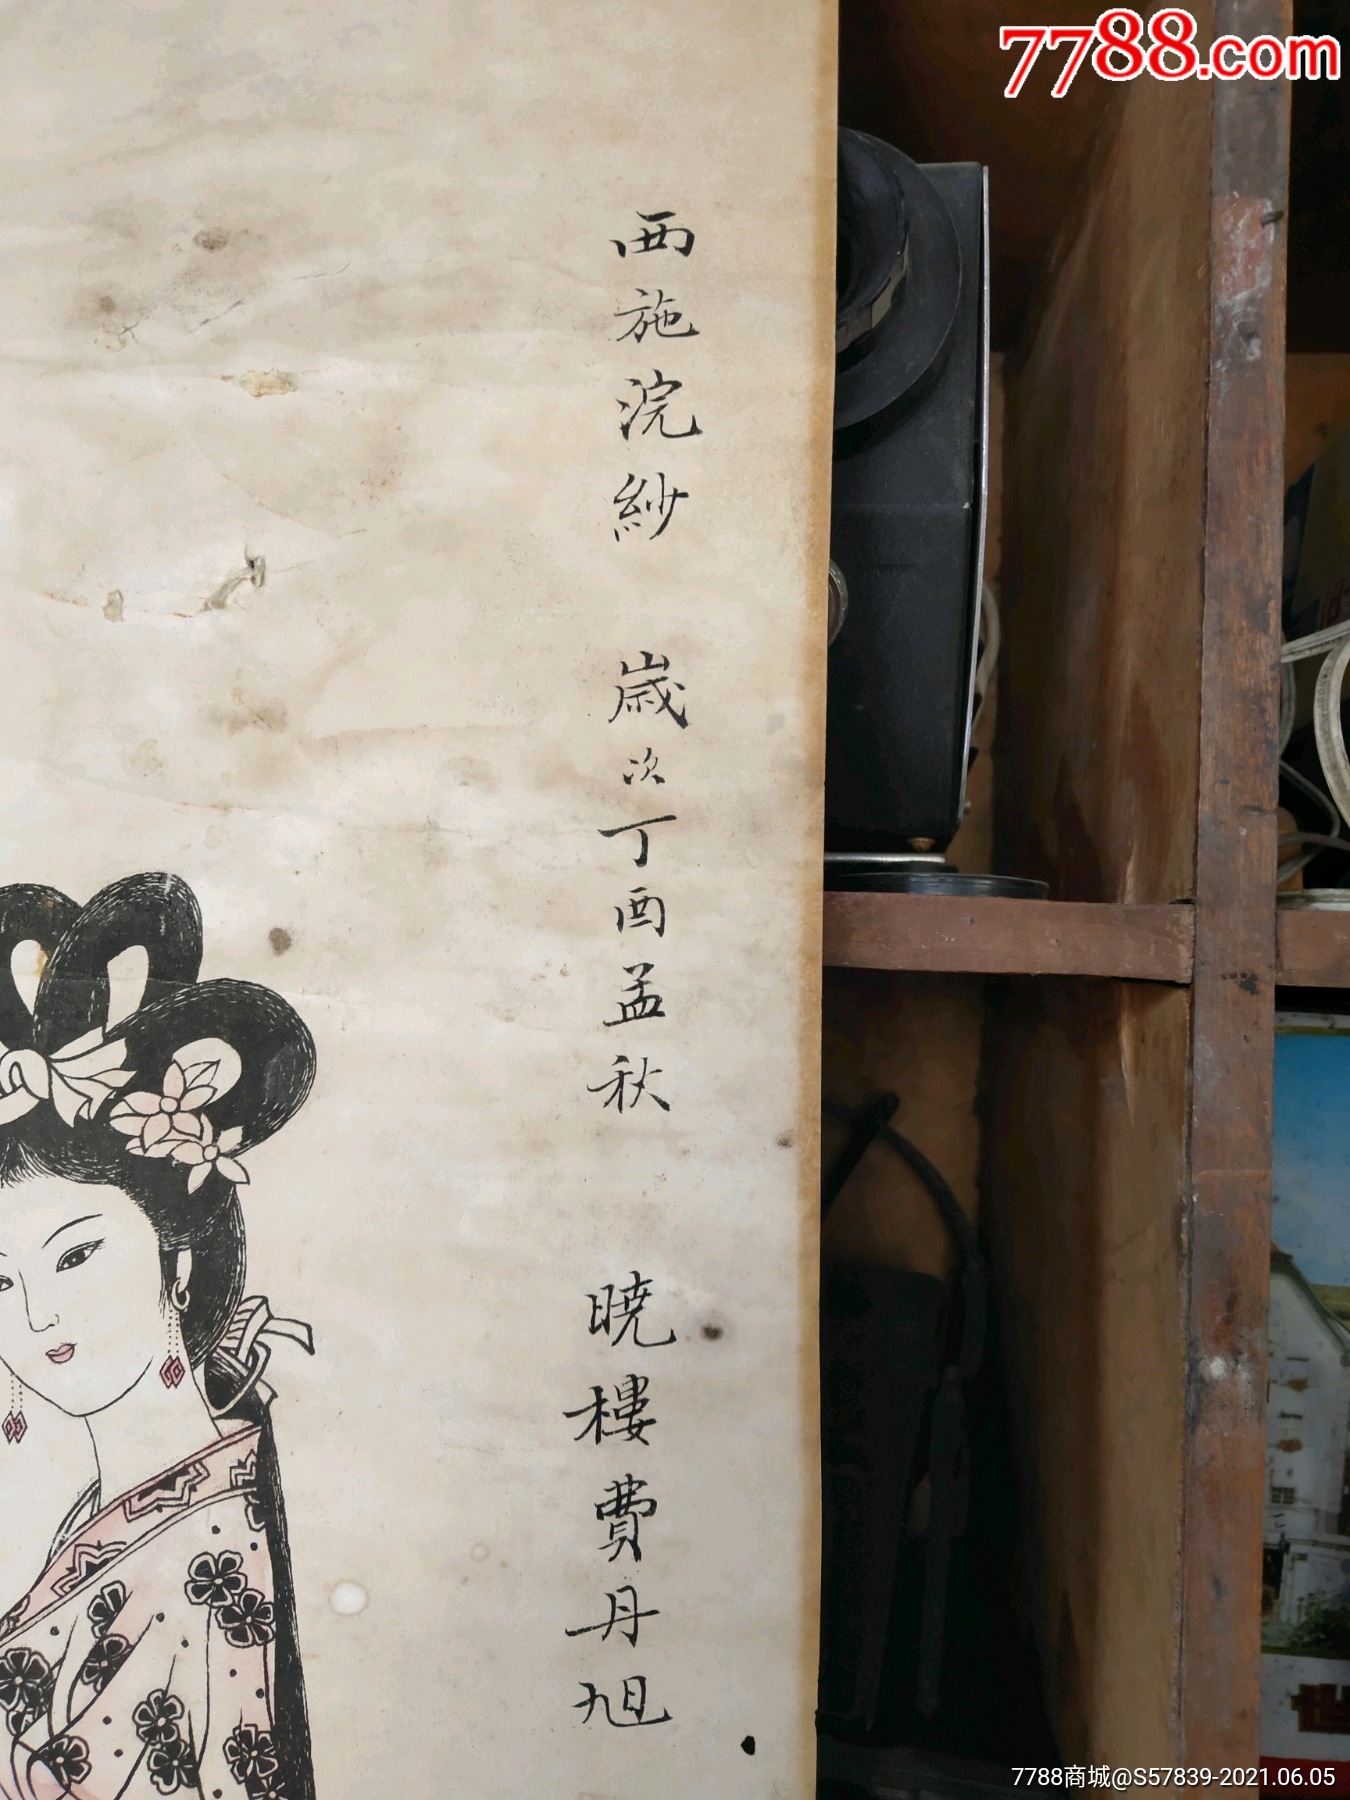 7788.com
西施浣紗 歲次丁酉孟秋 曉樓費丹旭
7788商城@S57839-2021.06.05